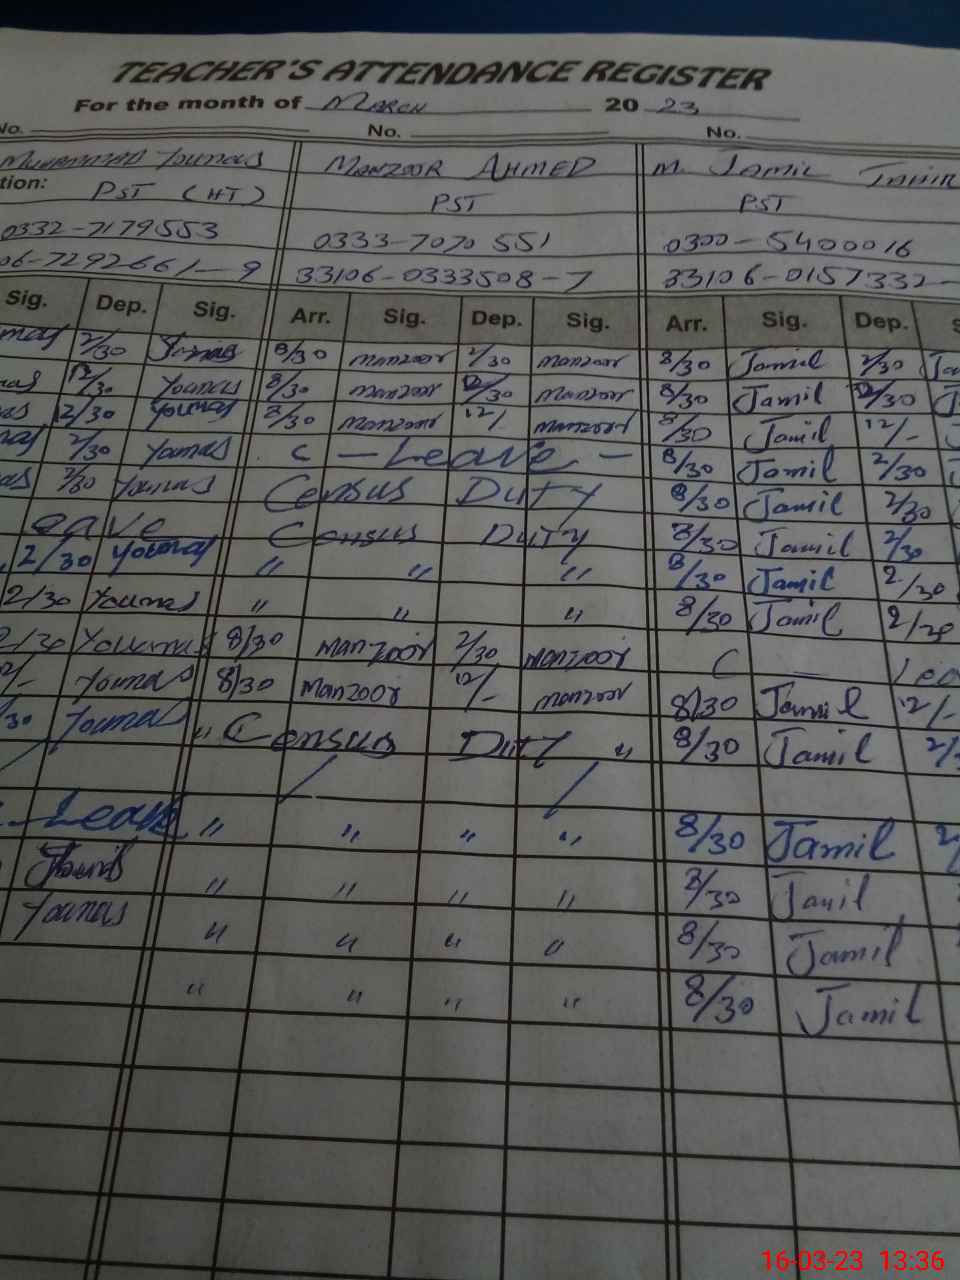 TEACHER'S ATTENDANCE REGISTER
For the month of March 20 23
No. No. No.
Muhammad Younas MANZOOR AHMED M. Jamil Tahir
tion: PST (HT) PST PST
0332-7179553 0333-7070 551 0300-5400016
06-7292661-9 33106-0333508-7 33106-0157332-
Sig. Dep. Sig. Arr. Sig. Dep. Sig. Arr. Sig. Dep. S
2/30 Younas 8/30 manzoor 2/30 manzoor 8/30 Jamil 2/30 Ja
12/30 Younas 8/30 manzoor 12/30 manzoor 8/30 Jamil 12/30 J
12/30 Younas 8/30 manzoor 12/- manzoor 8/30 Jamil 12/-
2/30 Younas C - Leave - 8/30 Jamil 2/30
2/30 Younas Census Duty 8/30 Jamil 2/30
eave Census Duty 8/30 Jamil 2/30
2/30 Younas " " " 8/30 Jamil 2/30
2/30 Younas " " " 8/30 Jamil 2/30
2/30 Younas 8/30 manzoor 2/30 manzoor C - Lea
12/- Younas 8/30 manzoor 12/- manzoor 8/30 Jamil 12/-
/30 Younas " Census Duty " 8/30 Jamil 2/3
Leave " " " " 8/30 Jamil 2/
Younas " " " " 8/30 Jamil
Younas " " " " 8/30 Jamil
" " " " 8/30 Jamil
16-03-23 13:36